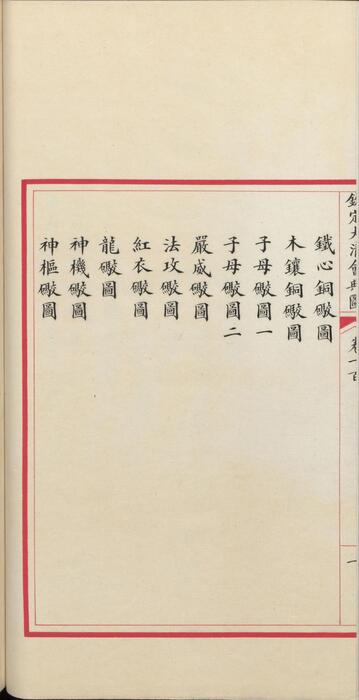 欽定大清會典圖
卷一百
一
鐵心銅礮圖
木鑲銅礮圖
子母礮圖一
子母礮圖二
嚴威礮圖
法攻礮圖
紅衣礮圖
龍礮圖
神機礮圖
神樞礮圖